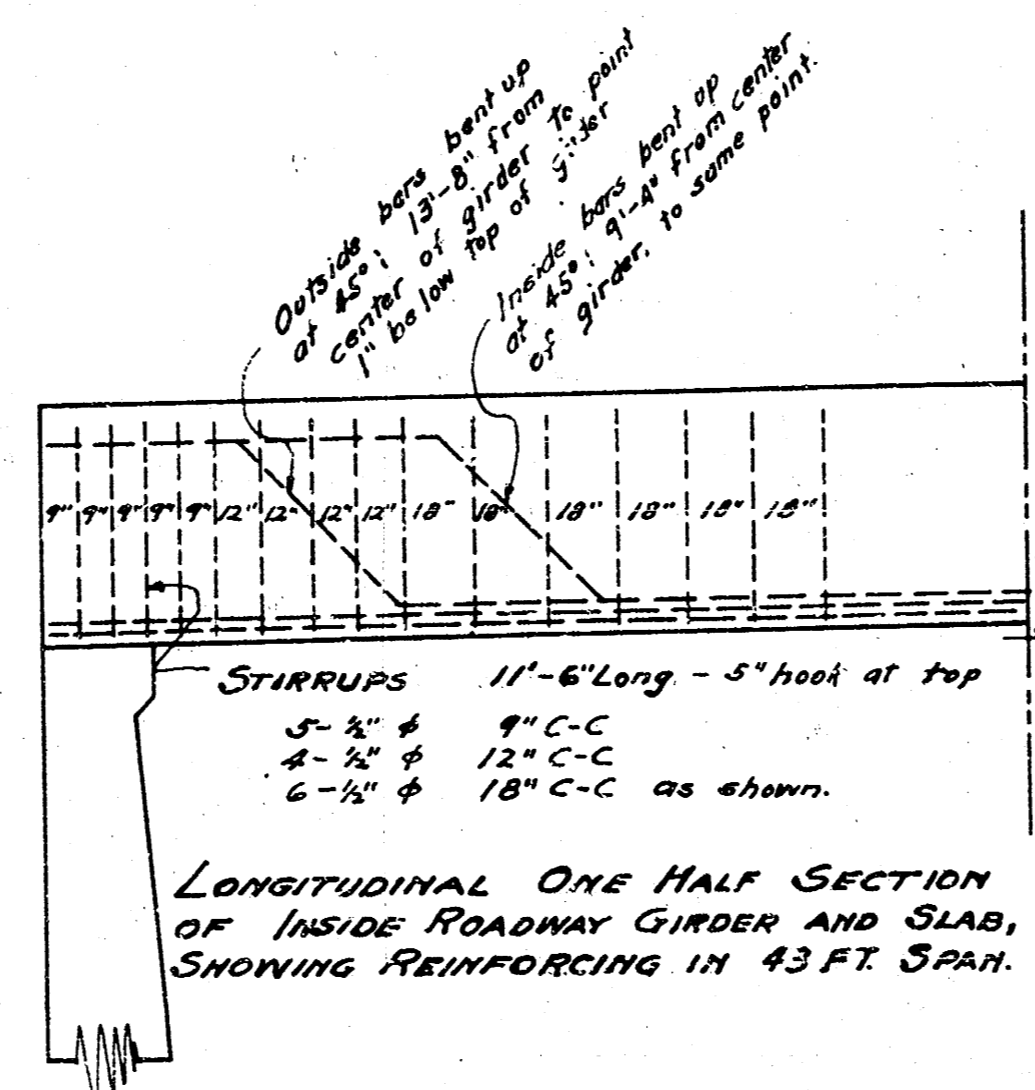 Outside bars bent up
at 45°; 13'-8" from
center of girder to point
1" below top of girder
Inside bars bent up
at 45°; 9'-4" from center
of girder, to same point.
9" 9" 9" 9" 9" 12" 12" 12" 12" 18" 18" 18" 18" 18" 18"
STIRRUPS 11'-6" Long - 5" hook at top
5-½" ϕ 9" C-C
4-½" ϕ 12" C-C
6-½" ϕ 18" C-C as shown.
LONGITUDINAL ONE HALF SECTION
OF INSIDE ROADWAY GIRDER AND SLAB,
SHOWING REINFORCING IN 43 FT. SPAN.